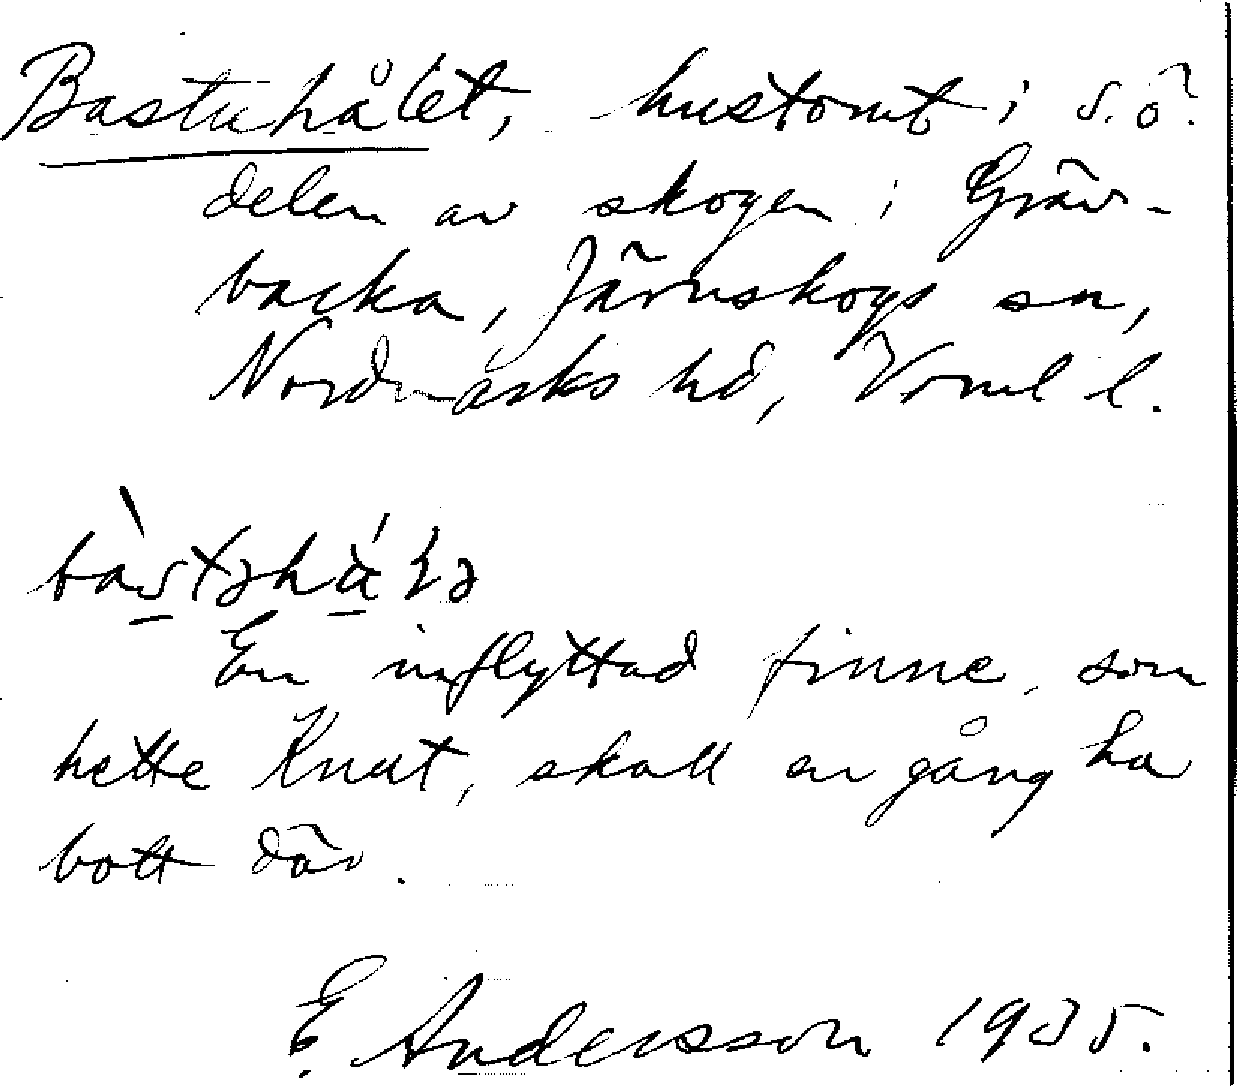 Bastuhålet, hustomt i s.ö.
delen av skogen i Gräv-
backa, Järnskogs sn,
Nordmarks hd, Värml l.
En inflyttad finne, som
hette Knut, skall en gång ha
bott där.
E. Andersson 1935.